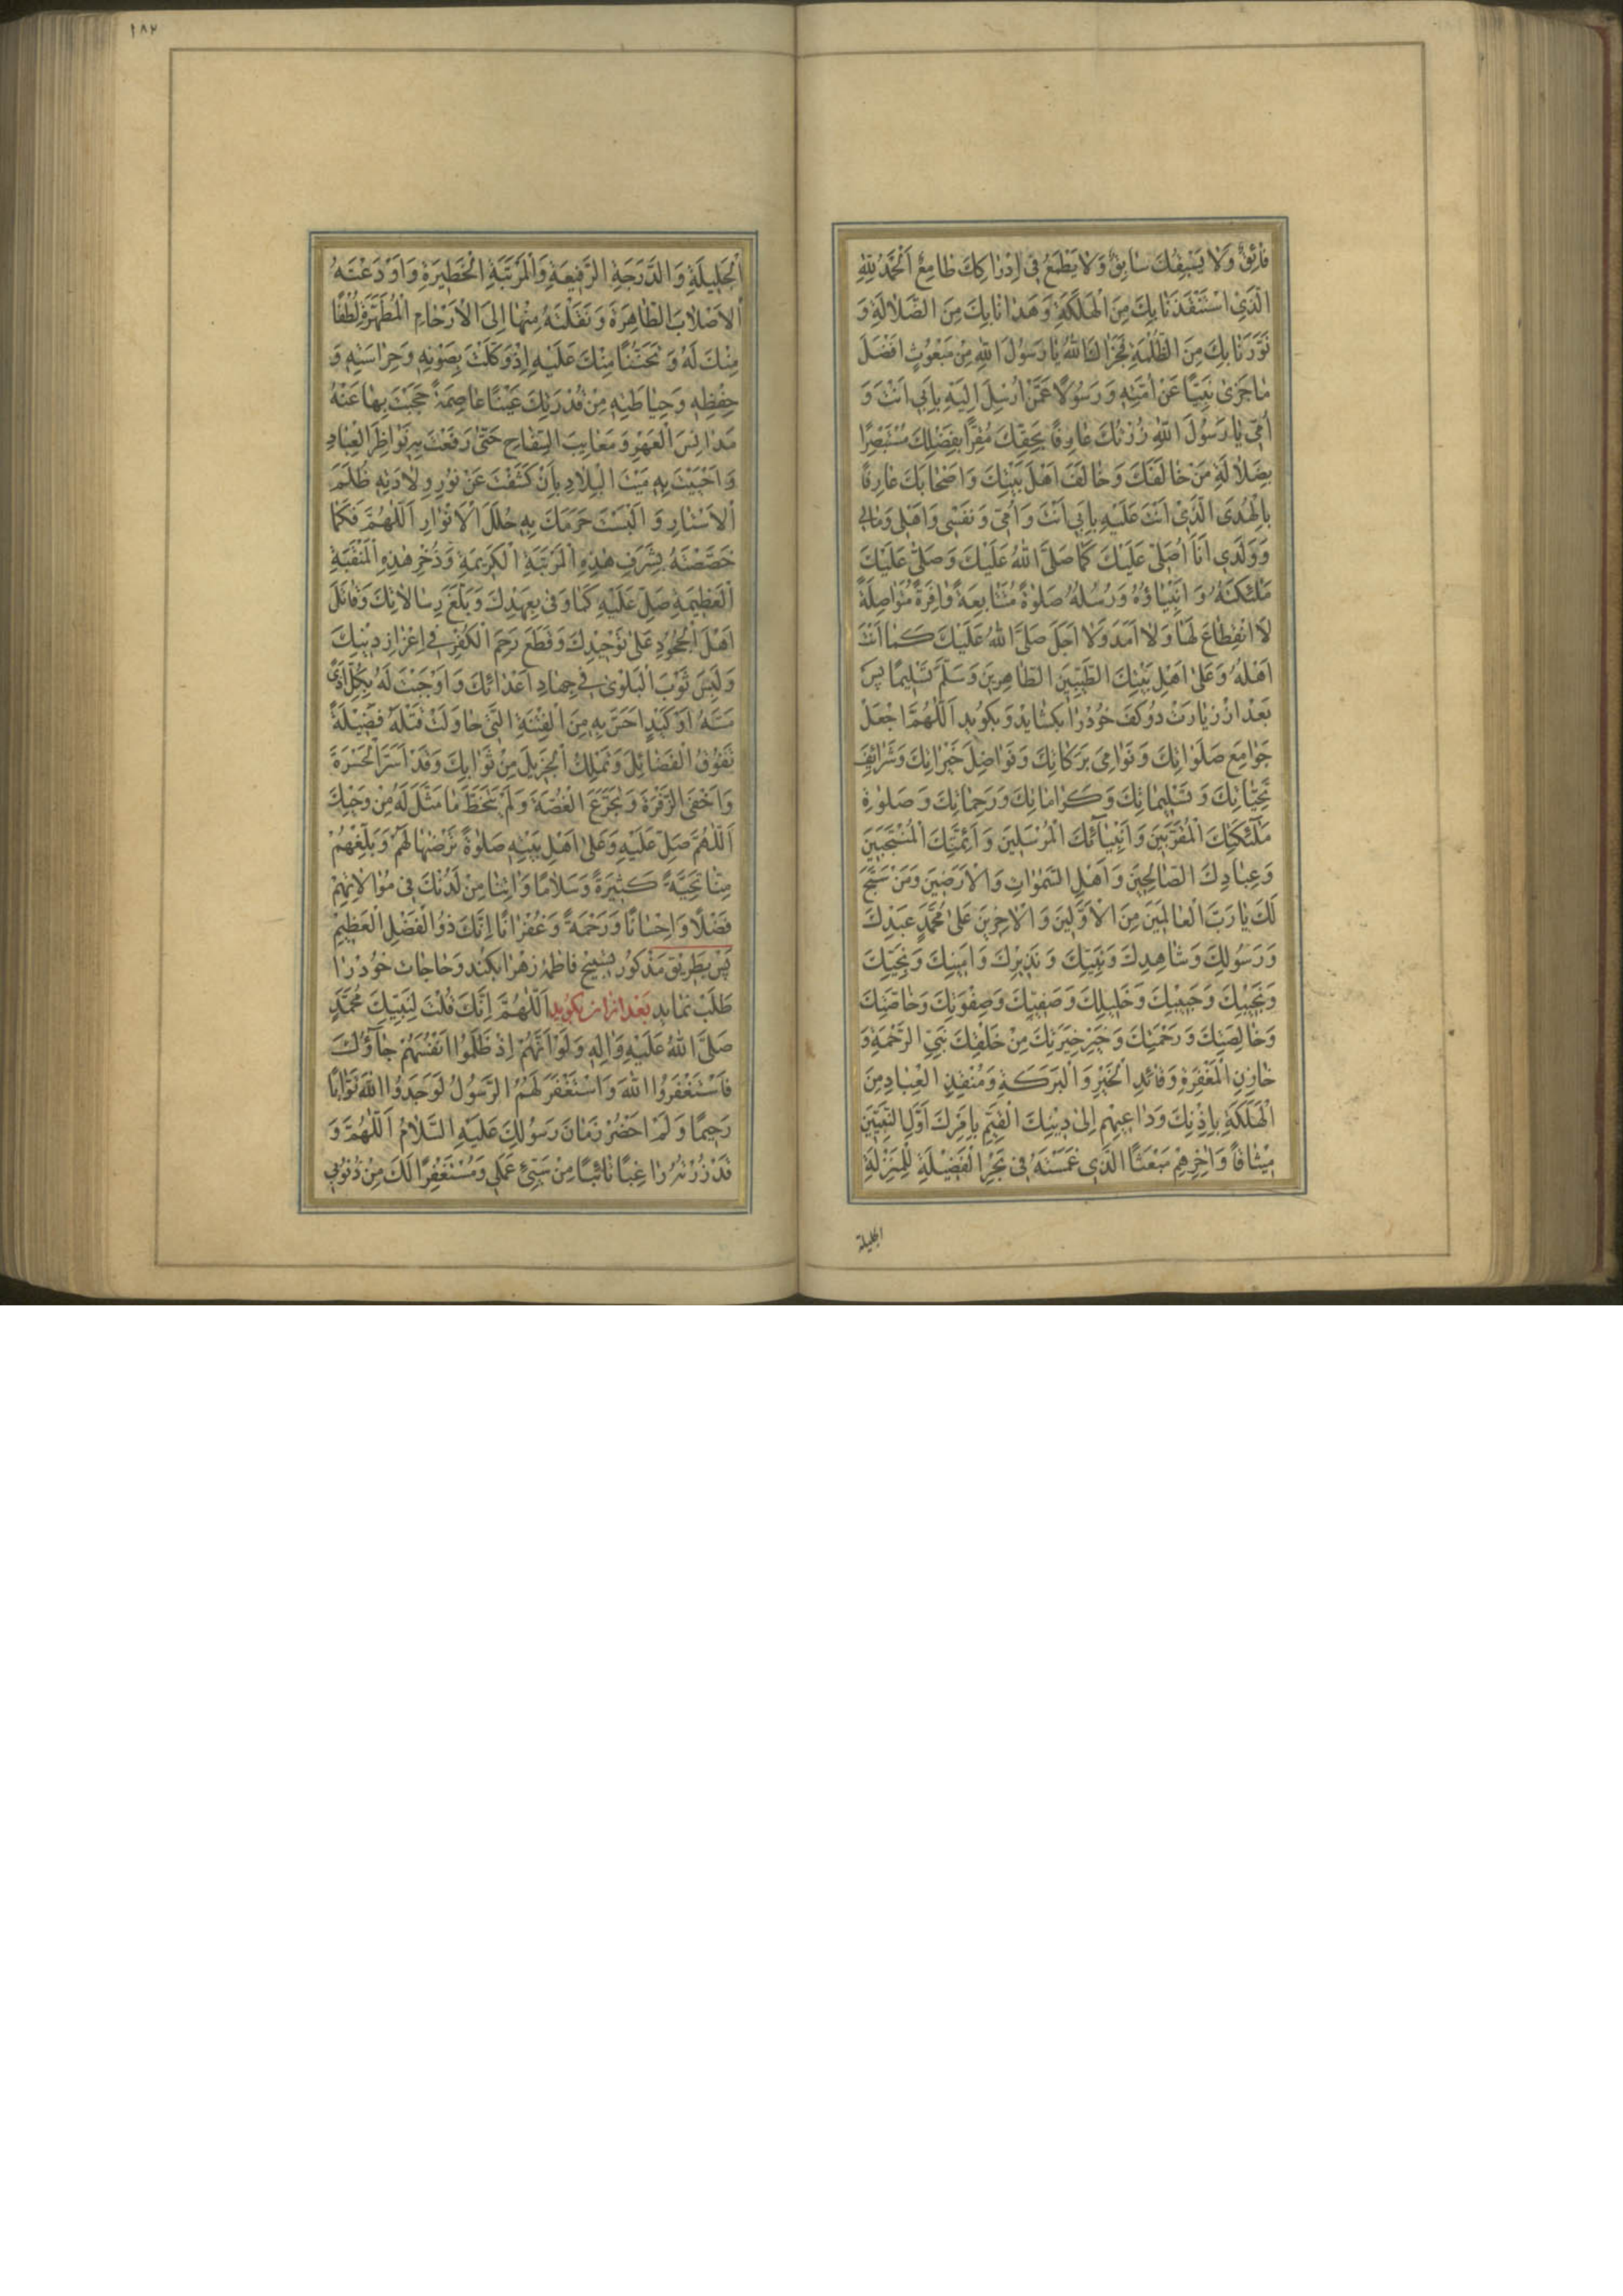 فَائِقٌ وَلَا يَسْبِقُكَ سَابِقٌ وَلَا يَطْمَعُ فِي إِدْرَاكِكَ طَامِعٌ اَلْحَمْدُ لِلّٰهِ
الَّذِي اسْتَنْقَذَنَا بِكَ مِنَ الْهَلَكَةِ وَهَدَانَا بِكَ مِنَ الضَّلَالَةِ وَ
نَوَّرَنَا بِكَ مِنَ الظُّلْمَةِ فَجَزَاكَ اللّٰهُ يَا رَسُولَ اللّٰهِ مِنْ مَبْعُوثٍ اَفْضَلَ
مَا جَزٰى نَبِيًّا عَنْ اُمَّتِهِ وَرَسُولًا عَمَّنْ اُرْسِلَ اِلَيْهِ بِاَبِي اَنْتَ وَ
اُمِّي يَا رَسُولَ اللّٰهِ زُرْتُكَ عَارِفًا بِحَقِّكَ مُقِرًّا بِفَضْلِكَ مُسْتَبْصِرًا
بِضَلَالَةِ مَنْ خَالَفَكَ وَخَالَفَ اَهْلَ بَيْتِكَ وَاَصْحَابَكَ عَارِفًا
بِالْهُدَى الَّذِي اَنْتَ عَلَيْهِ بِاَبِي اَنْتَ وَاُمِّي وَنَفْسِي وَاَهْلِي وَمَالِي
وَوَلَدِي اَنَا اُصَلِّي عَلَيْكَ كَمَا صَلَّى اللّٰهُ عَلَيْكَ وَصَلّٰى عَلَيْكَ
مَلٰئِكَتُهُ وَاَنْبِيَاؤُهُ وَرُسُلُهُ صَلٰوةً مُتَتَابِعَةً وَافِرَةً مُتَوَاصِلَةً
لَا انْقِطَاعَ لَهَا وَلَا اَمَدَ وَلَا اَجَلَ صَلَّى اللّٰهُ عَلَيْكَ كَمَا اَنْتَ
اَهْلُهُ وَعَلٰى اَهْلِ بَيْتِكَ الطَّيِّبِينَ الطَّاهِرِينَ وَسَلَّمَ تَسْلِيمًا پس
بعد از زیارت دو کف خود را بکشاید و بکوید اَللّٰهُمَّ اجْعَلْ
جَوَامِعَ صَلَوَاتِكَ وَنَوَامِيَ بَرَكَاتِكَ وَفَوَاضِلَ خَيْرَاتِكَ وَشَرَائِفَ
تَحِيَّاتِكَ وَتَسْلِيمَاتِكَ وَكَرَامَاتِكَ وَرَحَمَاتِكَ وَصَلٰوةِ
مَلٰئِكَتِكَ الْمُقَرَّبِينَ وَاَنْبِيَآئِكَ الْمُرْسَلِينَ وَاَئِمَّتِكَ الْمُنْتَجَبِينَ
وَعِبَادِكَ الصَّالِحِينَ وَاَهْلِ السَّمٰوَاتِ وَالْاَرَضِينَ وَمَنْ سَبَّحَ
لَكَ يَا رَبَّ الْعَالَمِينَ مِنَ الْاَوَّلِينَ وَالْاٰخِرِينَ عَلٰى مُحَمَّدٍ عَبْدِكَ
وَرَسُولِكَ وَشَاهِدِكَ وَنَبِيِّكَ وَنَذِيرِكَ وَاَمِينِكَ وَنَجِيِّكَ
وَنَجِيبِكَ وَحَبِيبِكَ وَخَلِيلِكَ وَصَفِيِّكَ وَصِفْوَتِكَ وَخَاصَّتِكَ
وَخَالِصَتِكَ وَرَحْمَتِكَ وَخَيْرِ خِيَرَتِكَ مِنْ خَلْقِكَ نَبِيِّ الرَّحْمَةِ وَ
خَازِنِ الْمَغْفِرَةِ وَقَائِدِ الْخَيْرِ وَالْبَرَكَةِ وَمُنْقِذِ الْعِبَادِ مِنَ
الْهَلَكَةِ بِاِذْنِكَ وَدَاعِيهِمْ اِلٰى دِينِكَ الْقَيِّمِ بِاَمْرِكَ اَوَّلِ النَّبِيِّينَ
مِيثَاقًا وَاٰخِرِهِمْ مَبْعَثًا الَّذِي غَمَسْتَهُ فِي بَحْرِ الْفَضِيلَةِ لِلْمَنْزِلَةِ
الجلیلة
١٨٢
اَلْجَلِيلَةِ وَالدَّرَجَةِ الرَّفِيعَةِ وَالْمَرْتَبَةِ الْخَطِيرَةِ وَاَوْدَعْتَهُ
الْاَصْلَابَ الطَّاهِرَةَ وَنَقَلْتَهُ مِنْهَا اِلَى الْاَرْحَامِ الْمُطَهَّرَةِ لُطْفًا
مِنْكَ لَهُ وَتَحَنُّنًا مِنْكَ عَلَيْهِ اِذْ وَكَّلْتَ بِصَوْنِهِ وَحِرَاسَتِهِ وَ
حِفْظِهِ وَحِيَاطَتِهِ مِنْ قُدْرَتِكَ عَيْنًا عَاصِمَةً حَجَبْتَ بِهَا عَنْهُ
مَدَانِسَ الْعَهْرِ وَمَعَايِبَ السِّفَاحِ حَتّٰى رَفَعْتَ بِهِ نَوَاظِرَ الْعِبَادِ
وَاَحْيَيْتَ بِهِ مَيْتَ الْبِلَادِ بِاَنْ كَشَفْتَ عَنْ نُورِ وِلَادَتِهِ ظُلَمَ
الْاَسْتَارِ وَاَلْبَسْتَ حَرَمَكَ بِهِ حُلَلَ الْاَنْوَارِ اَللّٰهُمَّ فَكَمَا
خَصَصْتَهُ بِشَرَفِ هٰذِهِ الْمَرْتَبَةِ الْكَرِيمَةِ وَذُخْرِ هٰذِهِ الْمَنْقَبَةِ
الْعَظِيمَةِ صَلِّ عَلَيْهِ كَمَا وَفٰى بِعَهْدِكَ وَبَلَّغَ رِسَالَاتِكَ وَقَاتَلَ
اَهْلَ الْجُحُودِ عَلٰى تَوْحِيدِكَ وَقَطَعَ رَحِمَ الْكُفْرِ فِي اِعْزَازِ دِينِكَ
وَلَبِسَ ثَوْبَ الْبَلْوٰى فِي جِهَادِ اَعْدَائِكَ وَاَوْجَبْتَ لَهُ بِكُلِّ اَذًى
مَسَّهُ اَوْ كَيْدٍ اَحَسَّ بِهِ مِنَ الْفِئَةِ الَّتِي حَاوَلَتْ قَتْلَهُ فَضِيلَةً
تَفُوقُ الْفَضَائِلَ وَتَمْلِكُ الْجَزِيلَ مِنْ ثَوَابِكَ وَقَدْ اَسَرَّ الْحَسْرَةَ
وَاَخْفَى الزَّفْرَةَ وَتَجَرَّعَ الْغُصَّةَ وَلَمْ يَتَخَطَّ مَا مَثَّلَ لَهُ مِنْ وَحْيِكَ
اَللّٰهُمَّ صَلِّ عَلَيْهِ وَعَلٰى اَهْلِ بَيْتِهِ صَلٰوةً تَرْضٰهَا لَهُمْ وَبَلِّغْهُمْ
مِنَّا تَحِيَّةً كَثِيرَةً وَسَلَامًا وَاٰتِنَا مِنْ لَدُنْكَ فِي مُوَالَاتِهِمْ
فَضْلًا وَاِحْسَانًا وَرَحْمَةً وَغُفْرَانًا اِنَّكَ ذُو الْفَضْلِ الْعَظِيمِ
پس بطریق مذکور تسبیح فاطمهٔ زهرا بکند و حاجات خود را
طلب نماید بعد از ان بکوید اَللّٰهُمَّ اِنَّكَ قُلْتَ لِنَبِيِّكَ مُحَمَّدٍ
صَلَّى اللّٰهُ عَلَيْهِ وَاٰلِهِ وَلَوْ اَنَّهُمْ اِذْ ظَلَمُوا اَنْفُسَهُمْ جَآؤُكَ
فَاسْتَغْفَرُوا اللّٰهَ وَاسْتَغْفَرَ لَهُمُ الرَّسُولُ لَوَجَدُوا اللّٰهَ تَوَّابًا
رَحِيمًا وَلَمْ اَحْضُرْ زَمَانَ رَسُولِكَ عَلَيْهِ السَّلَامُ اَللّٰهُمَّ وَ
قَدْ زُرْتُهُ رَاغِبًا تَائِبًا مِنْ سَيِّئِ عَمَلِي وَمُسْتَغْفِرًا لَكَ مِنْ ذُنُوبِي